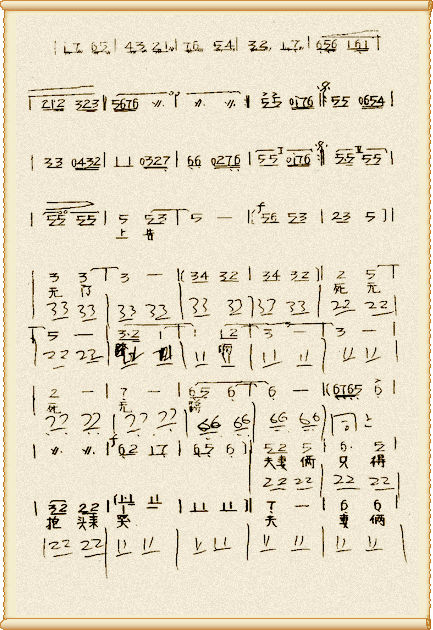 | 17 65 | 43 21 | 76 54 | 32 17 | 656 161 |
| 212 323 | 5676 〃 | 〃 〃 | 55 0176 | 55 0654 |
| 33 0432 | 11 0327 | 66 0276 | 55 0176 | 55 55 |
| 55 55 | 5 53 | 5 — | (56 53 | 23 5 ) |
上 告
| 3 3 | 3 — | (34 32 | 34 32) | 2 5 |
无 门 死 无
33 33 | 33 33 | 33 32 | 33 33 | 22 22 |
5 — | 3·2 1 | 1 12 | 3 — | 3 — |
22 22 | 11 11 | 11 11 | 11 11 |
2 — | 7 — | 65 6 | 6 — | (6765 6 |
死 无
22 22 | 22 22 | 66 66 | 66 66 |
| 〃 〃 | 62 17 | 65 6 ) | 52 5 | 6· 5 |
夫妻 俩 只 得
22 22 | 22 22 |
| 32 22 | (11 11 | 11 11 | 7 — | 6 6 |
抱 头 哭 夫 妻 俩
| 22 22 | 11 11 | 11 11 | 11 11 | 11 11 |